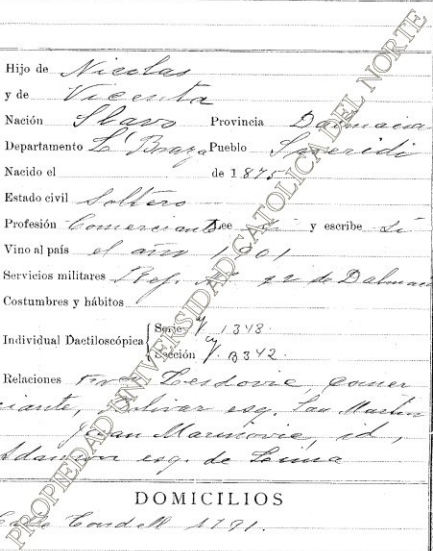 Hijo de Nicolas
y de Vicenta
Nación Slavo Provincia Dalmacia
Departamento L' Braza Pueblo
Nacido el de 1875
Estado civil Soltero
Profesión Comerciante Lee si y escribe Si
Vino al país el año 1901
Servicios militares de Dalmacia
Costumbres y hábitos
Individual Dactiloscópica { Serie 1348.
Sección B342.
Relaciones comer
ciante, Bolivar esq. San Martin
y Juan Marinovic, id,
esq. de Lima
DOMICILIOS
Calle Condell
PROPIEDAD UNIVERSIDAD CATOLICA DEL NORTE